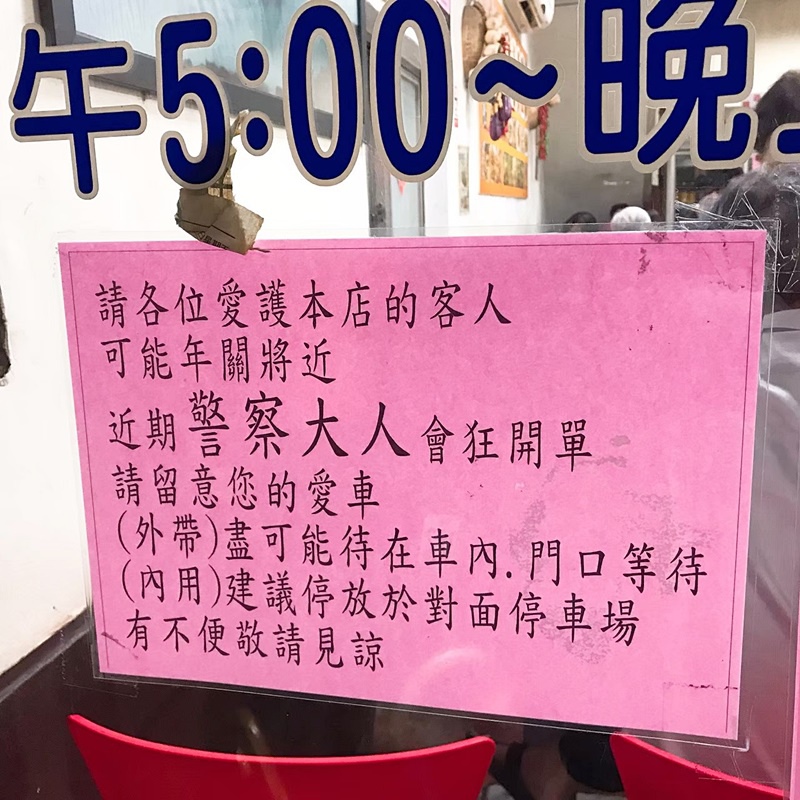 午5:00~晚
請各位愛護本店的客人
可能年關將近
近期警察大人會狂開單
請留意您的愛車
(外帶)盡可能待在車內.門口等待
(內用)建議停放於對面停車場
有不便敬請見諒